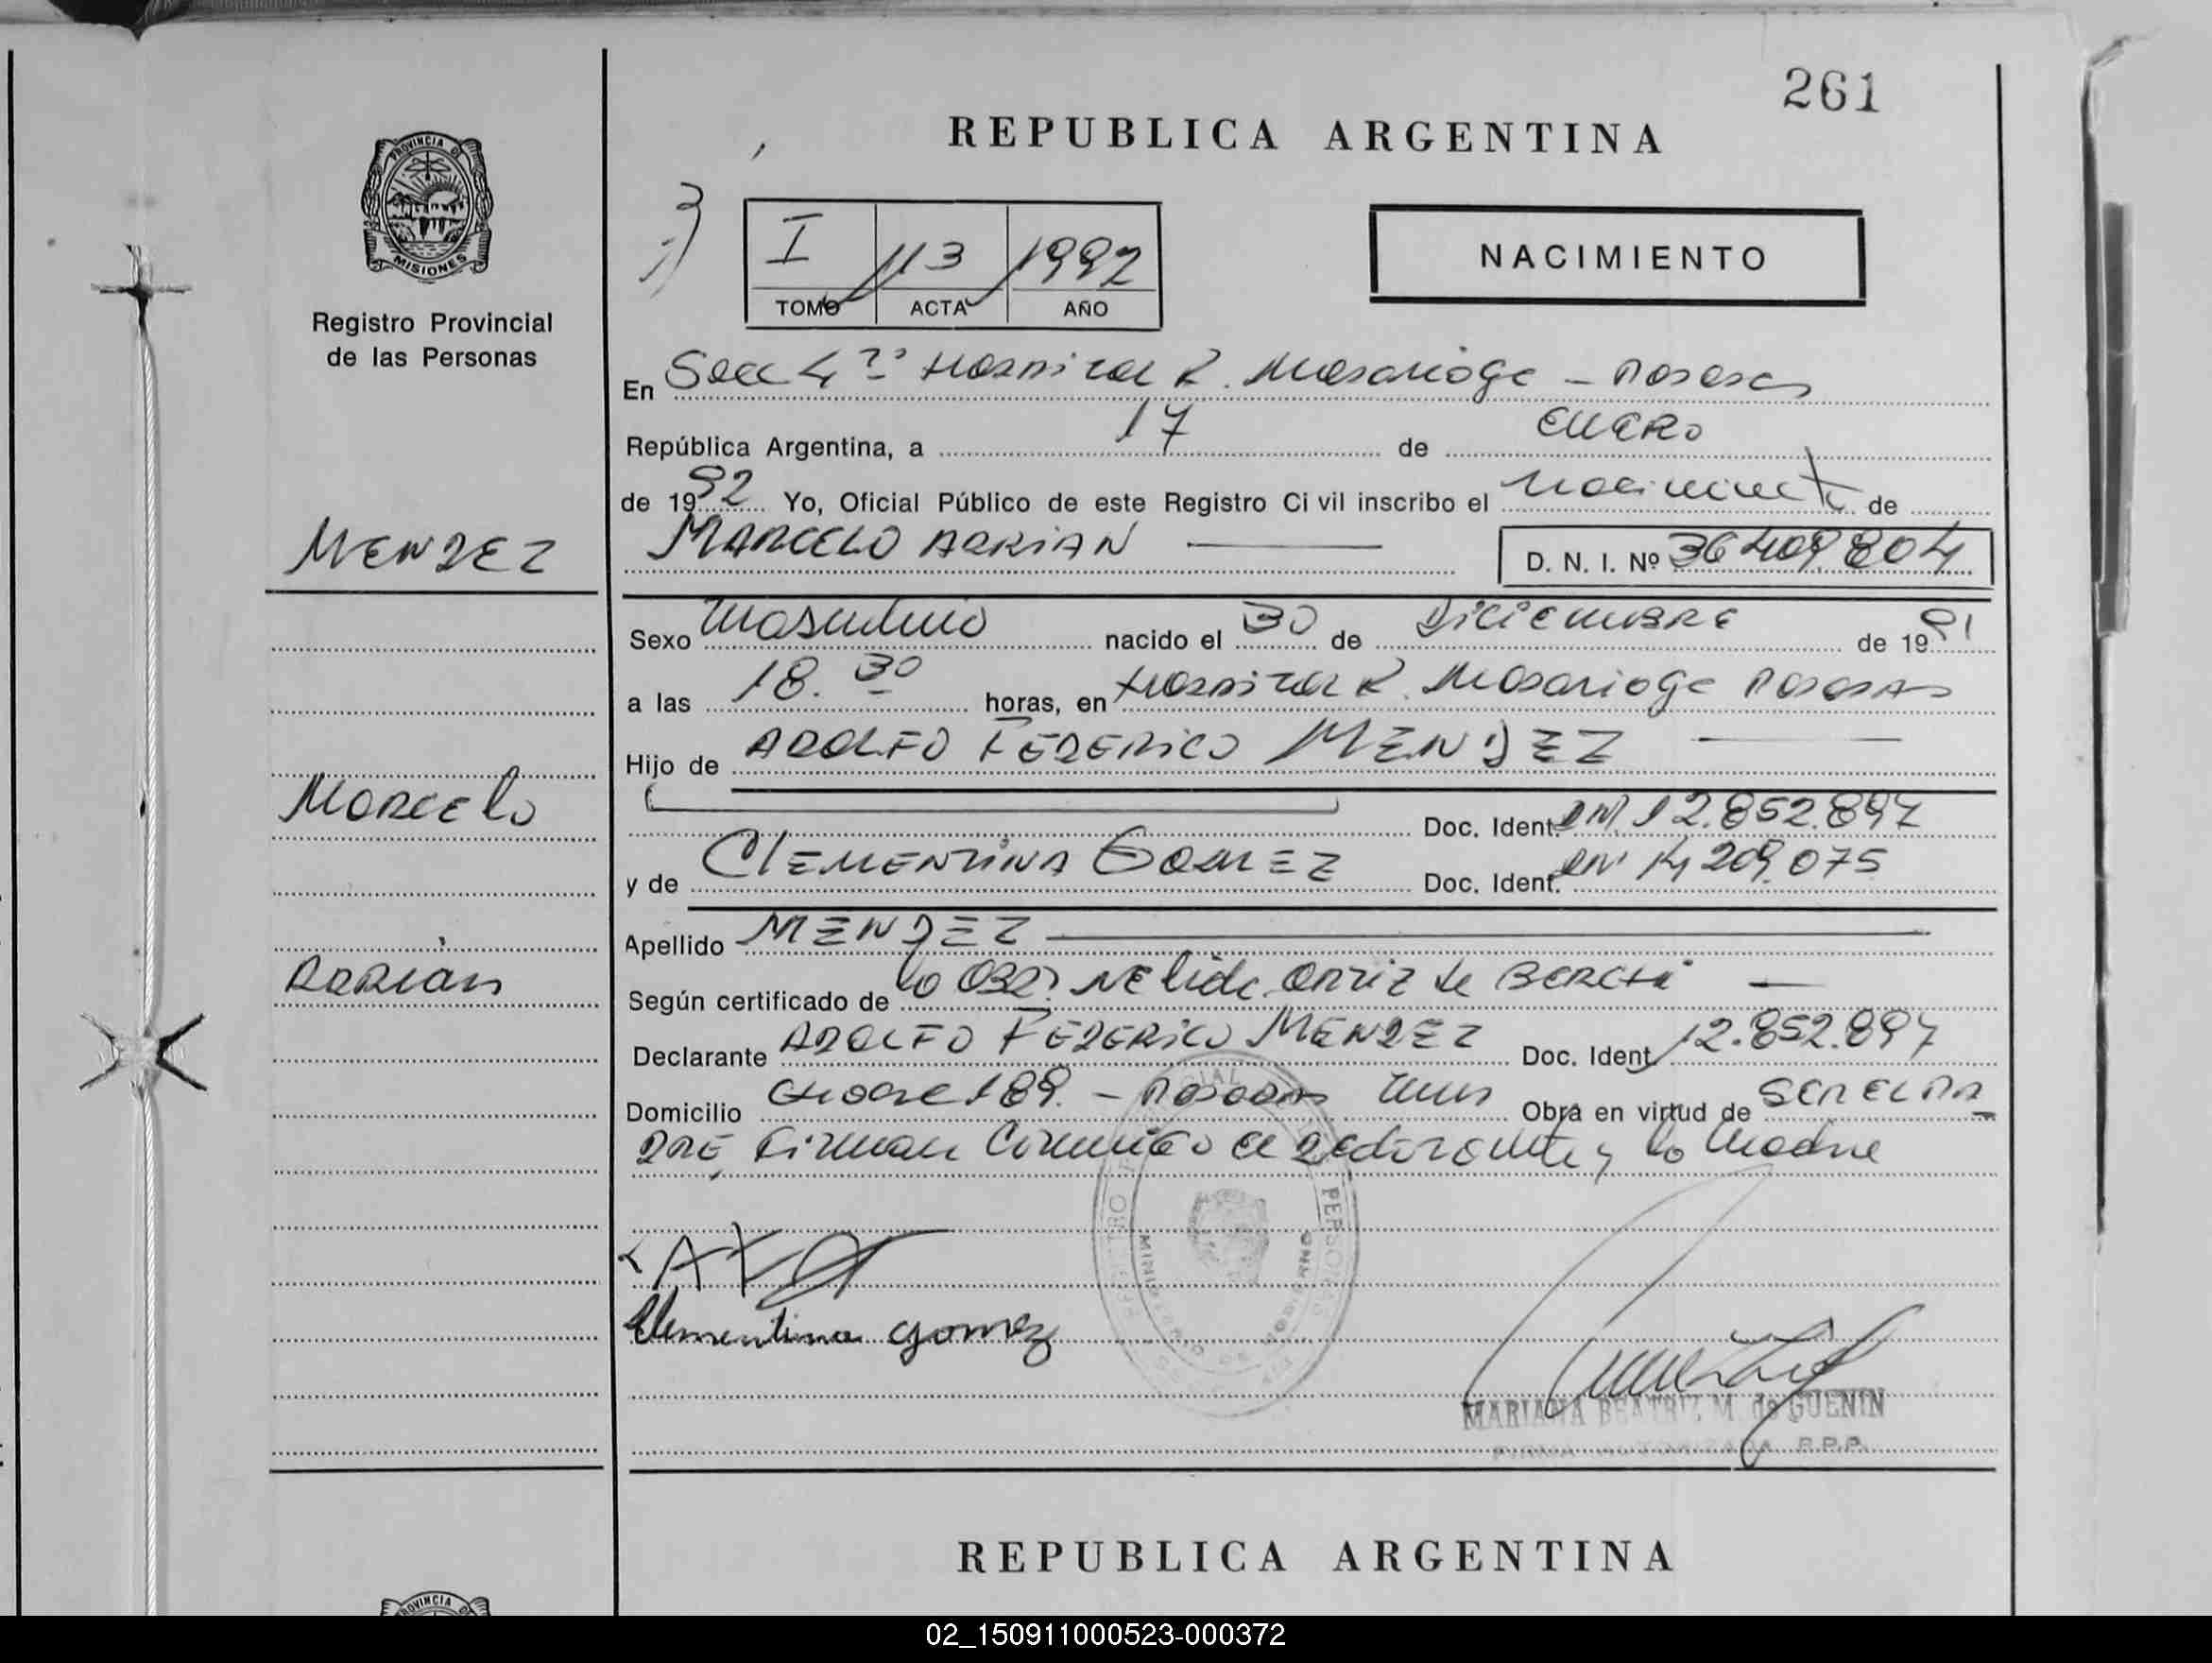 261
REPUBLICA ARGENTINA
PROVINCIA DE
MISIONES
Registro Provincial
de las Personas
I 113 1992
TOMO ACTA AÑO
NACIMIENTO
En Secc 4ª Hospital R. Madariaga - Posadas
República Argentina, a 17 de ENERO
de 1992 Yo, Oficial Público de este Registro Civil inscribo el nacimiento de
MENDEZ
MARCELO ADRIAN
D. N. I. Nº 36409804
Sexo Masculino nacido el 30 de Diciembre de 1991
a las 18.30 horas, en Hospital R. Madariaga Posadas
Hijo de ADOLFO FEDERICO MENDEZ
Marcelo
Doc. Ident. DNI 12.852.897
y de CLEMENTINA GOMEZ Doc. Ident. DNI 14.209.075
Apellido MENDEZ
Adrian
Según certificado de la Obst. Nelida Ortiz de
Declarante ADOLFO FEDERICO MENDEZ Doc. Ident. 12.852.897
Domicilio 189. - Posadas Mnes Obra en virtud de SER EL PA
DRE, Firman Conmigo el declarante y la Madre
Clementina Gomez
REGISTRO PERSONAS
MINISTERIO DE GOBIERNO
MARIANA BEATRIZ M. de GUENIN
FIRMA AUTORIZADA R.P.P.
REPUBLICA ARGENTINA
PROVINCIA DE
02_150911000523-000372